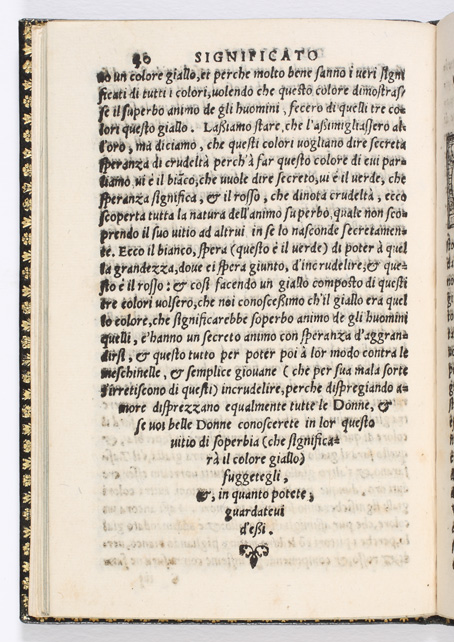 30 SIGNIFICATO
no un colore giallo, et perche molto bene sanno i ueri signi
ficati di tutti i colori, uolendo che questo colore dimostras=
se il superbo animo de gli huomini, fecero di quelli tre co=
lori questo giallo. Laßiamo stare, che l'aßimigliassero al
l'oro, ma diciamo, che questi colori uogliano dire secreta
speranza di crudeltà perch'à far questo colore di cui par=
liamo, ui è il biāco, che uuole dire secreto, ui è il uerde, che
speranza significa, & il rosso, che dinota crudeltà, ecco
scoperta tutta la natura dell'animo superbo, quale non sco=
prendo il suo uitio ad altrui in se lo nasconde secretamen=
te. Ecco il bianco, spera (questo è il uerde) di poter à quel
la grandezza, doue ei spera giunto, d'incrudelire, & que=
sto è il rosso: & così facendo un giallo composto di questi
tre colori uolsero, che noi conosceßimo ch'il giallo era quel
lo colore, che significarebbe soperbo animo de gli huomini
quelli, e'hanno un secreto animo con speranza d'aggran=
dirsi, & questo tutto per poter poi à lor modo contra le
meschinelle, & semplice giouane (che per sua mala sorte
s'irretiscono di questi) incrudelire, perche dispregiando a=
more disprezzano equalmente tutte le Donne, &
se uoi belle Donne conoscerete in lor questo
uitio di soperbia (che significa=
rà il colore giallo)
fuggetegli,
&, in quanto potete,
guardateui
d'eßi.